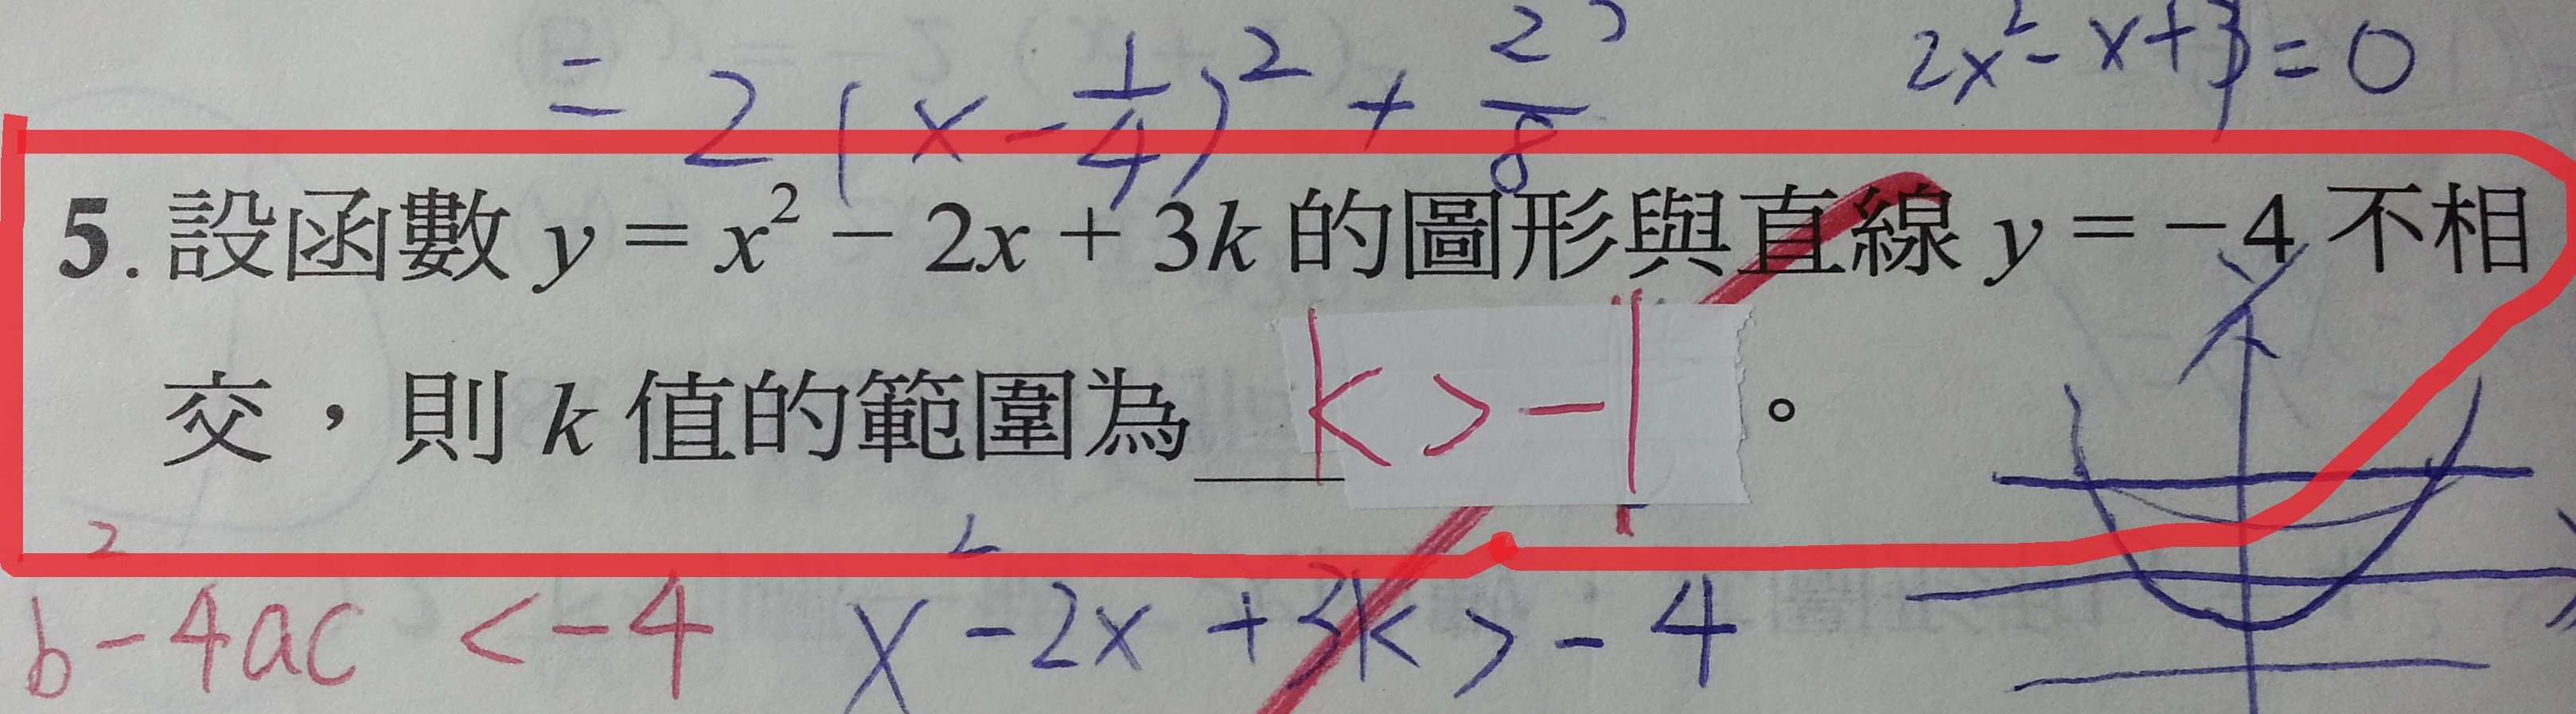 = 2(x-1/4)² + 2 /8
2x²-x+3=0
5. 設函數 y = x² − 2x + 3k 的圖形與直線 y = −4 不相
交，則 k 值的範圍為 k>-1 。
b²-4ac <-4 x²-2x+3k>-4